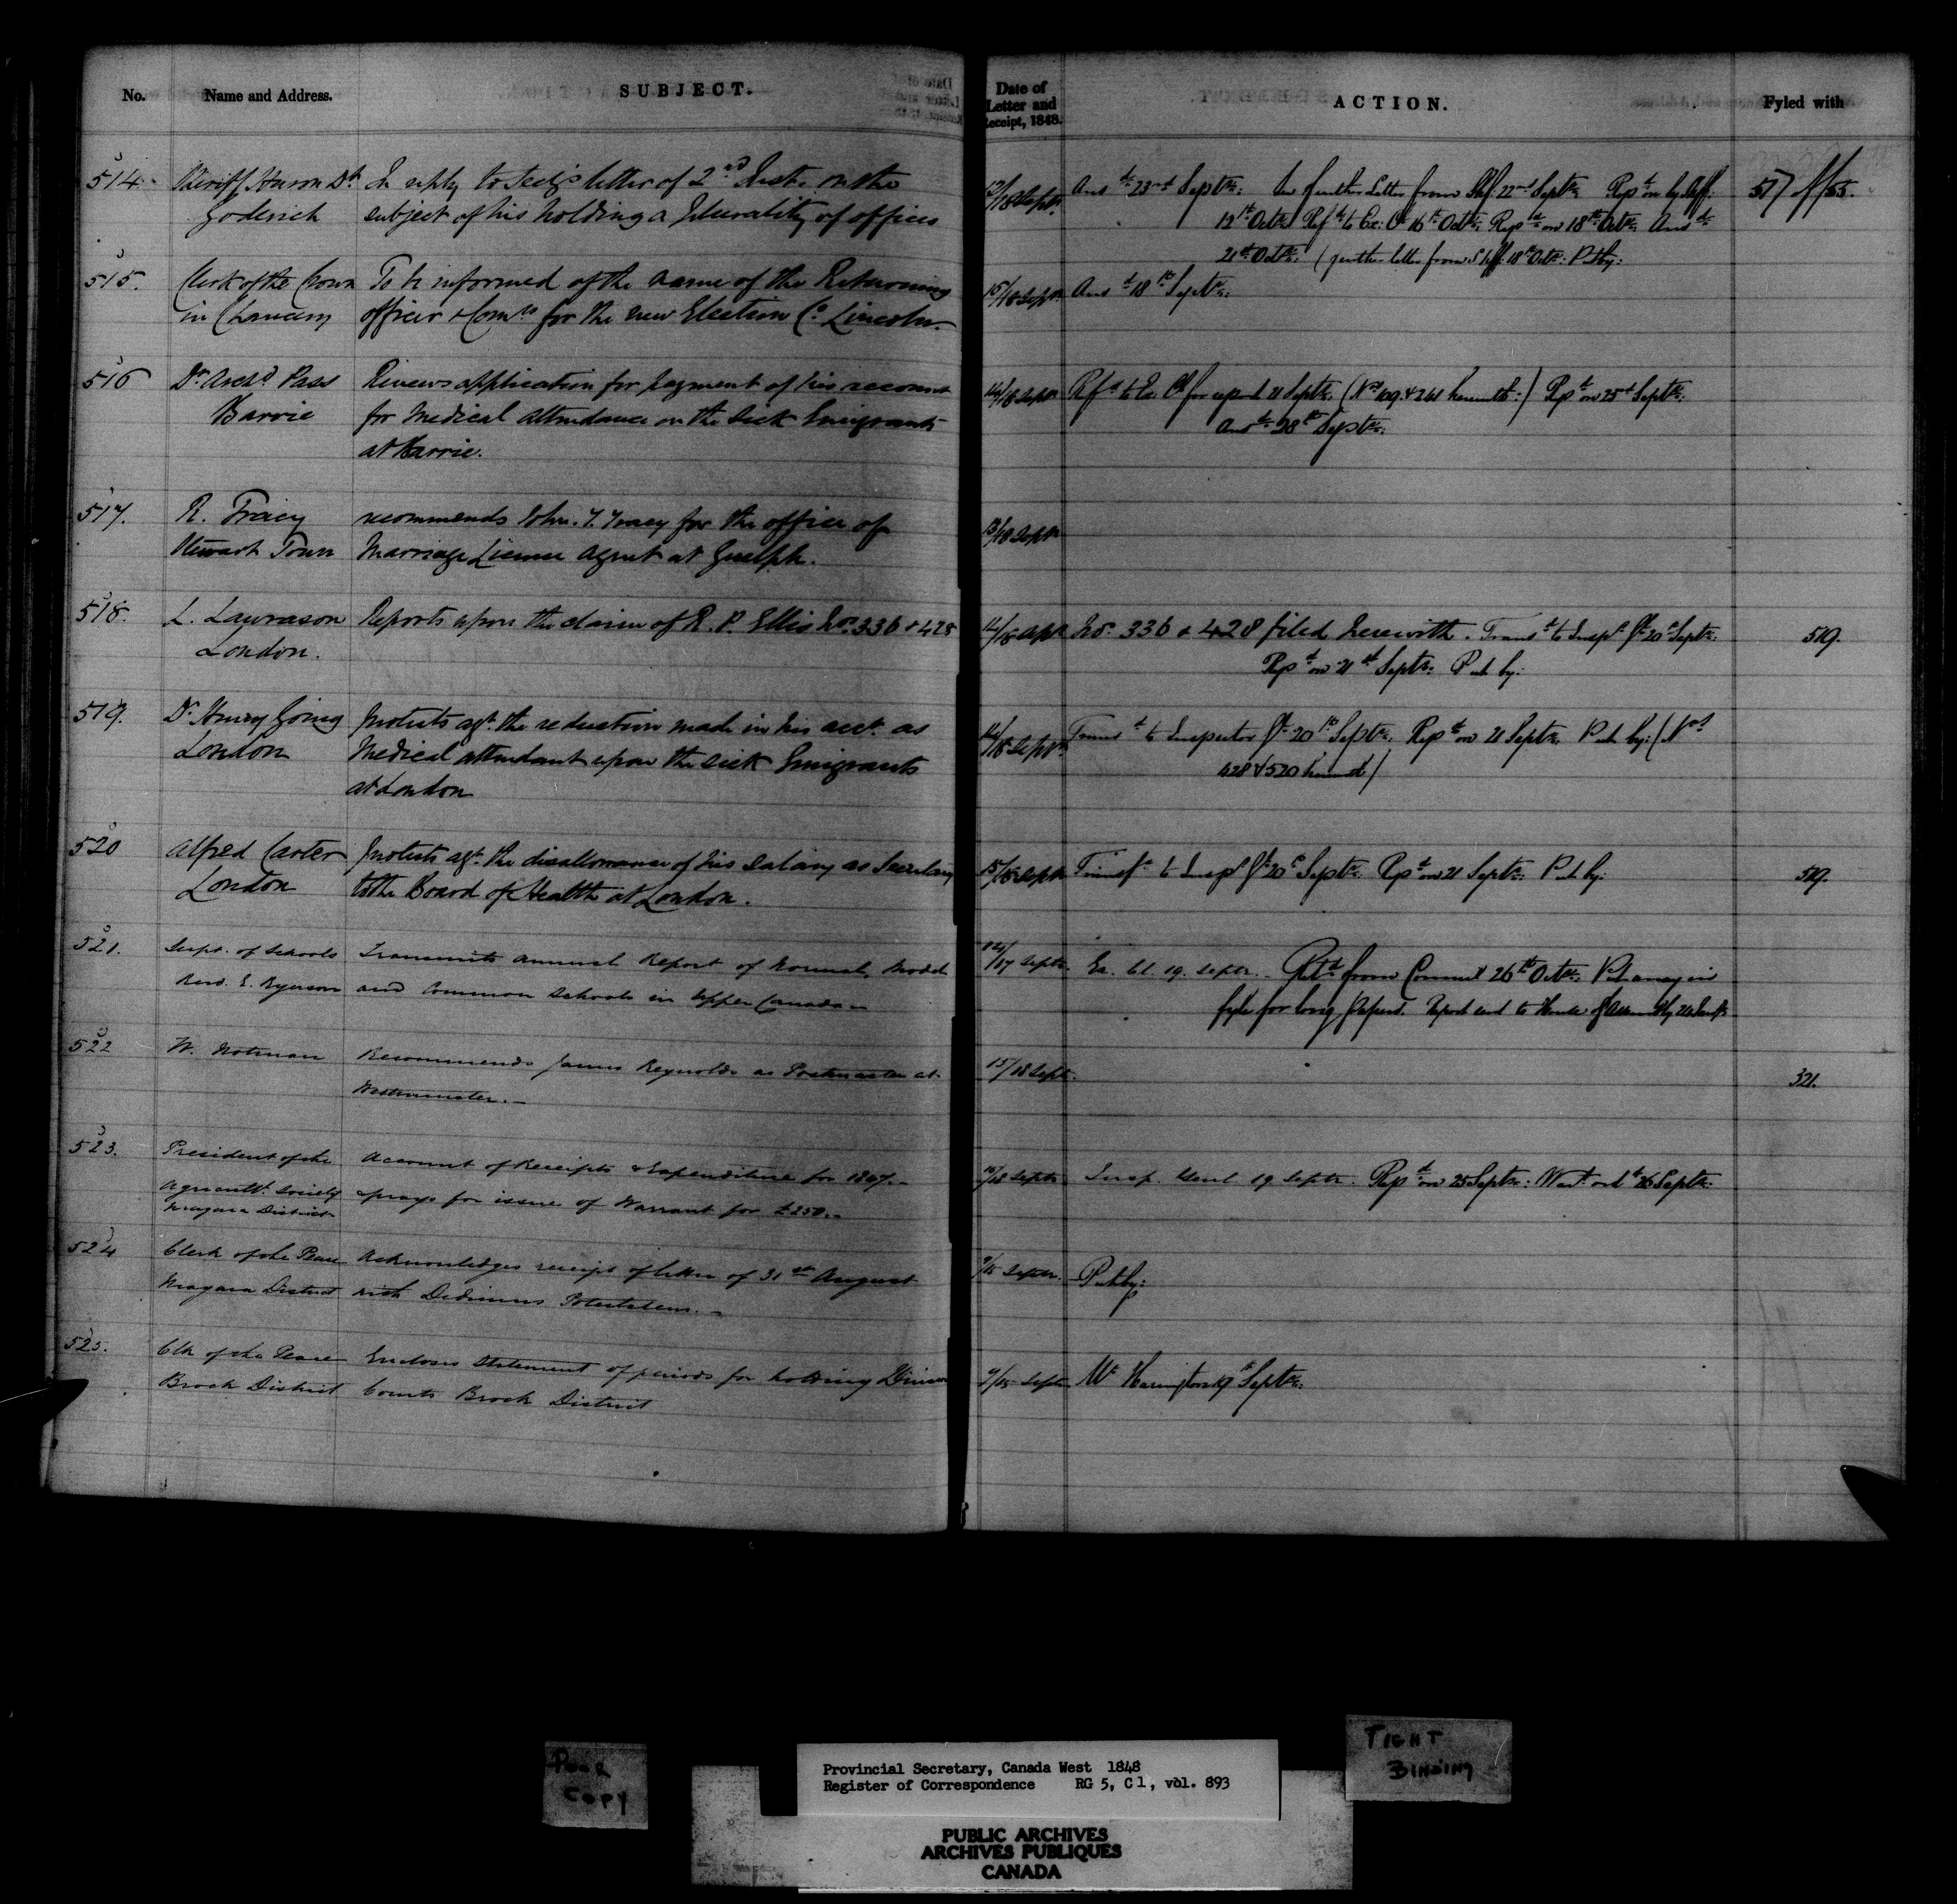 No. Name and Address. SUBJECT.
514. Sheriff Huron Dt In reply to Secy's letter of 2nd Inst. on the
Goderich subject of his holding a plurality of offices
515. Clerk of the Crown To be informed of the name of the Returning
in Chancery officer & Comrs for the new Election Co. Lincoln.
516 Dr Archd Pass Renews application for payment of his account
Barrie for Medical attendance on the sick Emigrants
at Barrie.
517. R. Tracy recommends John. T. Tracy for the office of
Stewart Town Marriage License Agent at Guelph.
518. L. Lawrason Reports upon the claim of R. P. Ellis Nos. 336 & 428
London.
519. Dr Henry Going Protests agt. the reduction made in his acct. as
London Medical attendant upon the sick Emigrants
at London
520 Alfred Carter Protests agt. the disallowance of his salary as Secretary
London to the Board of Health at London.
521. Supt. of Schools Transmits annual Report of Normal, Model
Revd. E. Ryerson and Common Schools in Upper Canada
522 W. Notman Recommends James Reynolds as Postmaster at
Westminster.
523. President of the Account of Receipts & Expenditure for 1847.
Agricultl. Society & prays for issue of Warrant for £250.
Niagara District
524 Clerk of the Peace Acknowledges receipt of letter of 31st August
Niagara District with Dedimus Potestatem.
525. Clk of the Peace Encloses Statement of periods for holding Division
Brock District Courts Brock District
Date of Letter and Receipt, 1848. ACTION. Fyled with
12/18 Septr. Ansd 23rd Septr: further letter from Shff. 22nd Septr Repd on by
12th Octr Refd to Ex: Cl 16th Octr: Repd on 18th Octr: Ansd
21st Octr: (further letter from Shff. 18th Octr: Put by:
15/18 Septr Ansd 18th Septr:
14/18 Septr Refd to Ex. Cl for report 21 Septr. (Nos 109 & 241 herewith:) Repd on 25th Septr:
Ansd 28th Septr:
13/18 Septr
14/18 Septr Nos. 336 & 428 filed herewith. Transd to Inspr Gl 20th Septr: 519.
Repd on 21st Septr: Put by:
14/18 Septr. Transd to Inspector Gl 20th Septr: Repd on 21 Septr. Put by: (Nos
428 & 520 herewd)
15/18 Septr Transfd to Inspr Gl 20th Septr. Repd on 21 Septr: Put by: 519.
14/17 Septr. Ex. Cl. 19. Septr. Retd from Council 26th Octr: Put away in
fyle for long papers. Report sent to House of Assembly
15/18 Septr. 321.
16/18 Septr Insp. Genl 19 Septr. Repd on 25 Septr: Wart ord 26 Septr:
9/15 Septr. Put by:
9/15 Septr Mr Harington 19th Septr:
POOR
COPY
TIGHT
BINDING
Provincial Secretary, Canada West 1848
Register of Correspondence RG 5, C 1, vol. 893
PUBLIC ARCHIVES
ARCHIVES PUBLIQUES
CANADA